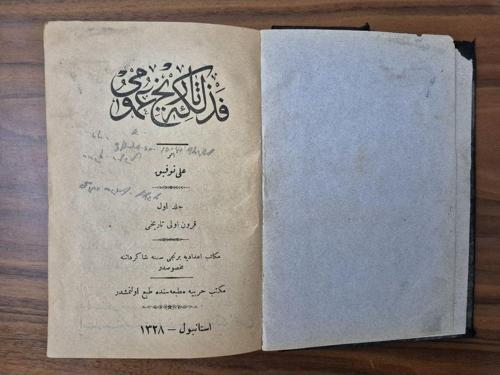 فذلكهٔ تاريخ عمومی
اثر
علی توفيق
جلد اول
قرون اولی تاريخی
مكاتب اعداديه برنجی سنه شاكرداننه
مخصوصدر
مكتب حربيه مطبعه‌سنده طبع اولنمشدر
استانبول — ١٣٢٨